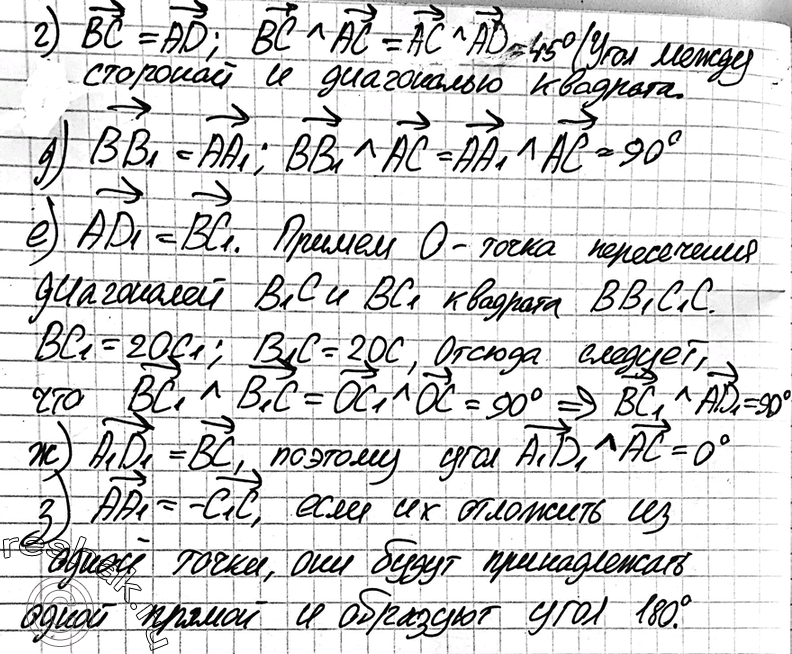 г) BC = AD; BC ^ AC = AC ^ AD = 45° (Угол между
стороной и диагональю квадрата.
д) BB₁ = AA₁; BB₁ ^ AC = AA₁ ^ AC = 90°
е) AD₁ = BC₁. Примем O - точка пересечения
диагоналей B₁C и BC₁ квадрата BB₁C₁C.
BC₁ = 2OC₁; B₁C = 2OC, Отсюда следует,
что BC₁ ^ B₁C = OC₁ ^ OC = 90° => BC₁ ^ AD₁ = 90°
ж) A₁D₁ = BC, поэтому угол A₁D₁ ^ AC = 0°
з) AA₁ = -C₁C, если их отложить из
одной точки, они будут принадлежать
одной прямой и образуют угол 180°.
reshak.ru